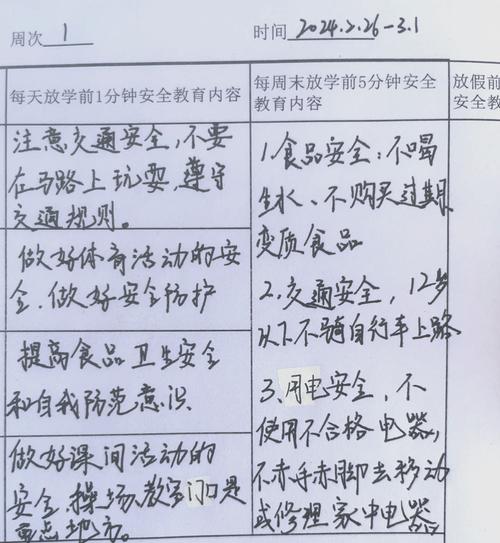 周次 1
时间 2024.2.26-3.1
每天放学前1分钟安全教育内容
注意交通安全,不要
在马路上玩耍,遵守
交通规则。
做好体育活动的安
全,做好安全防护
提高食品卫生安全
和自我防范意识
做好课间活动的
安全,操场教室门口是
重点地方。
每周末放学前5分钟安全
教育内容
1.食品安全:不喝
生水、不购买过期
变质食品
2.交通安全,12岁
以下不骑自行车上路
3.用电安全,不
使用不合格电器,
不赤手赤脚去移动
或修理家中电器
放假前
安全教